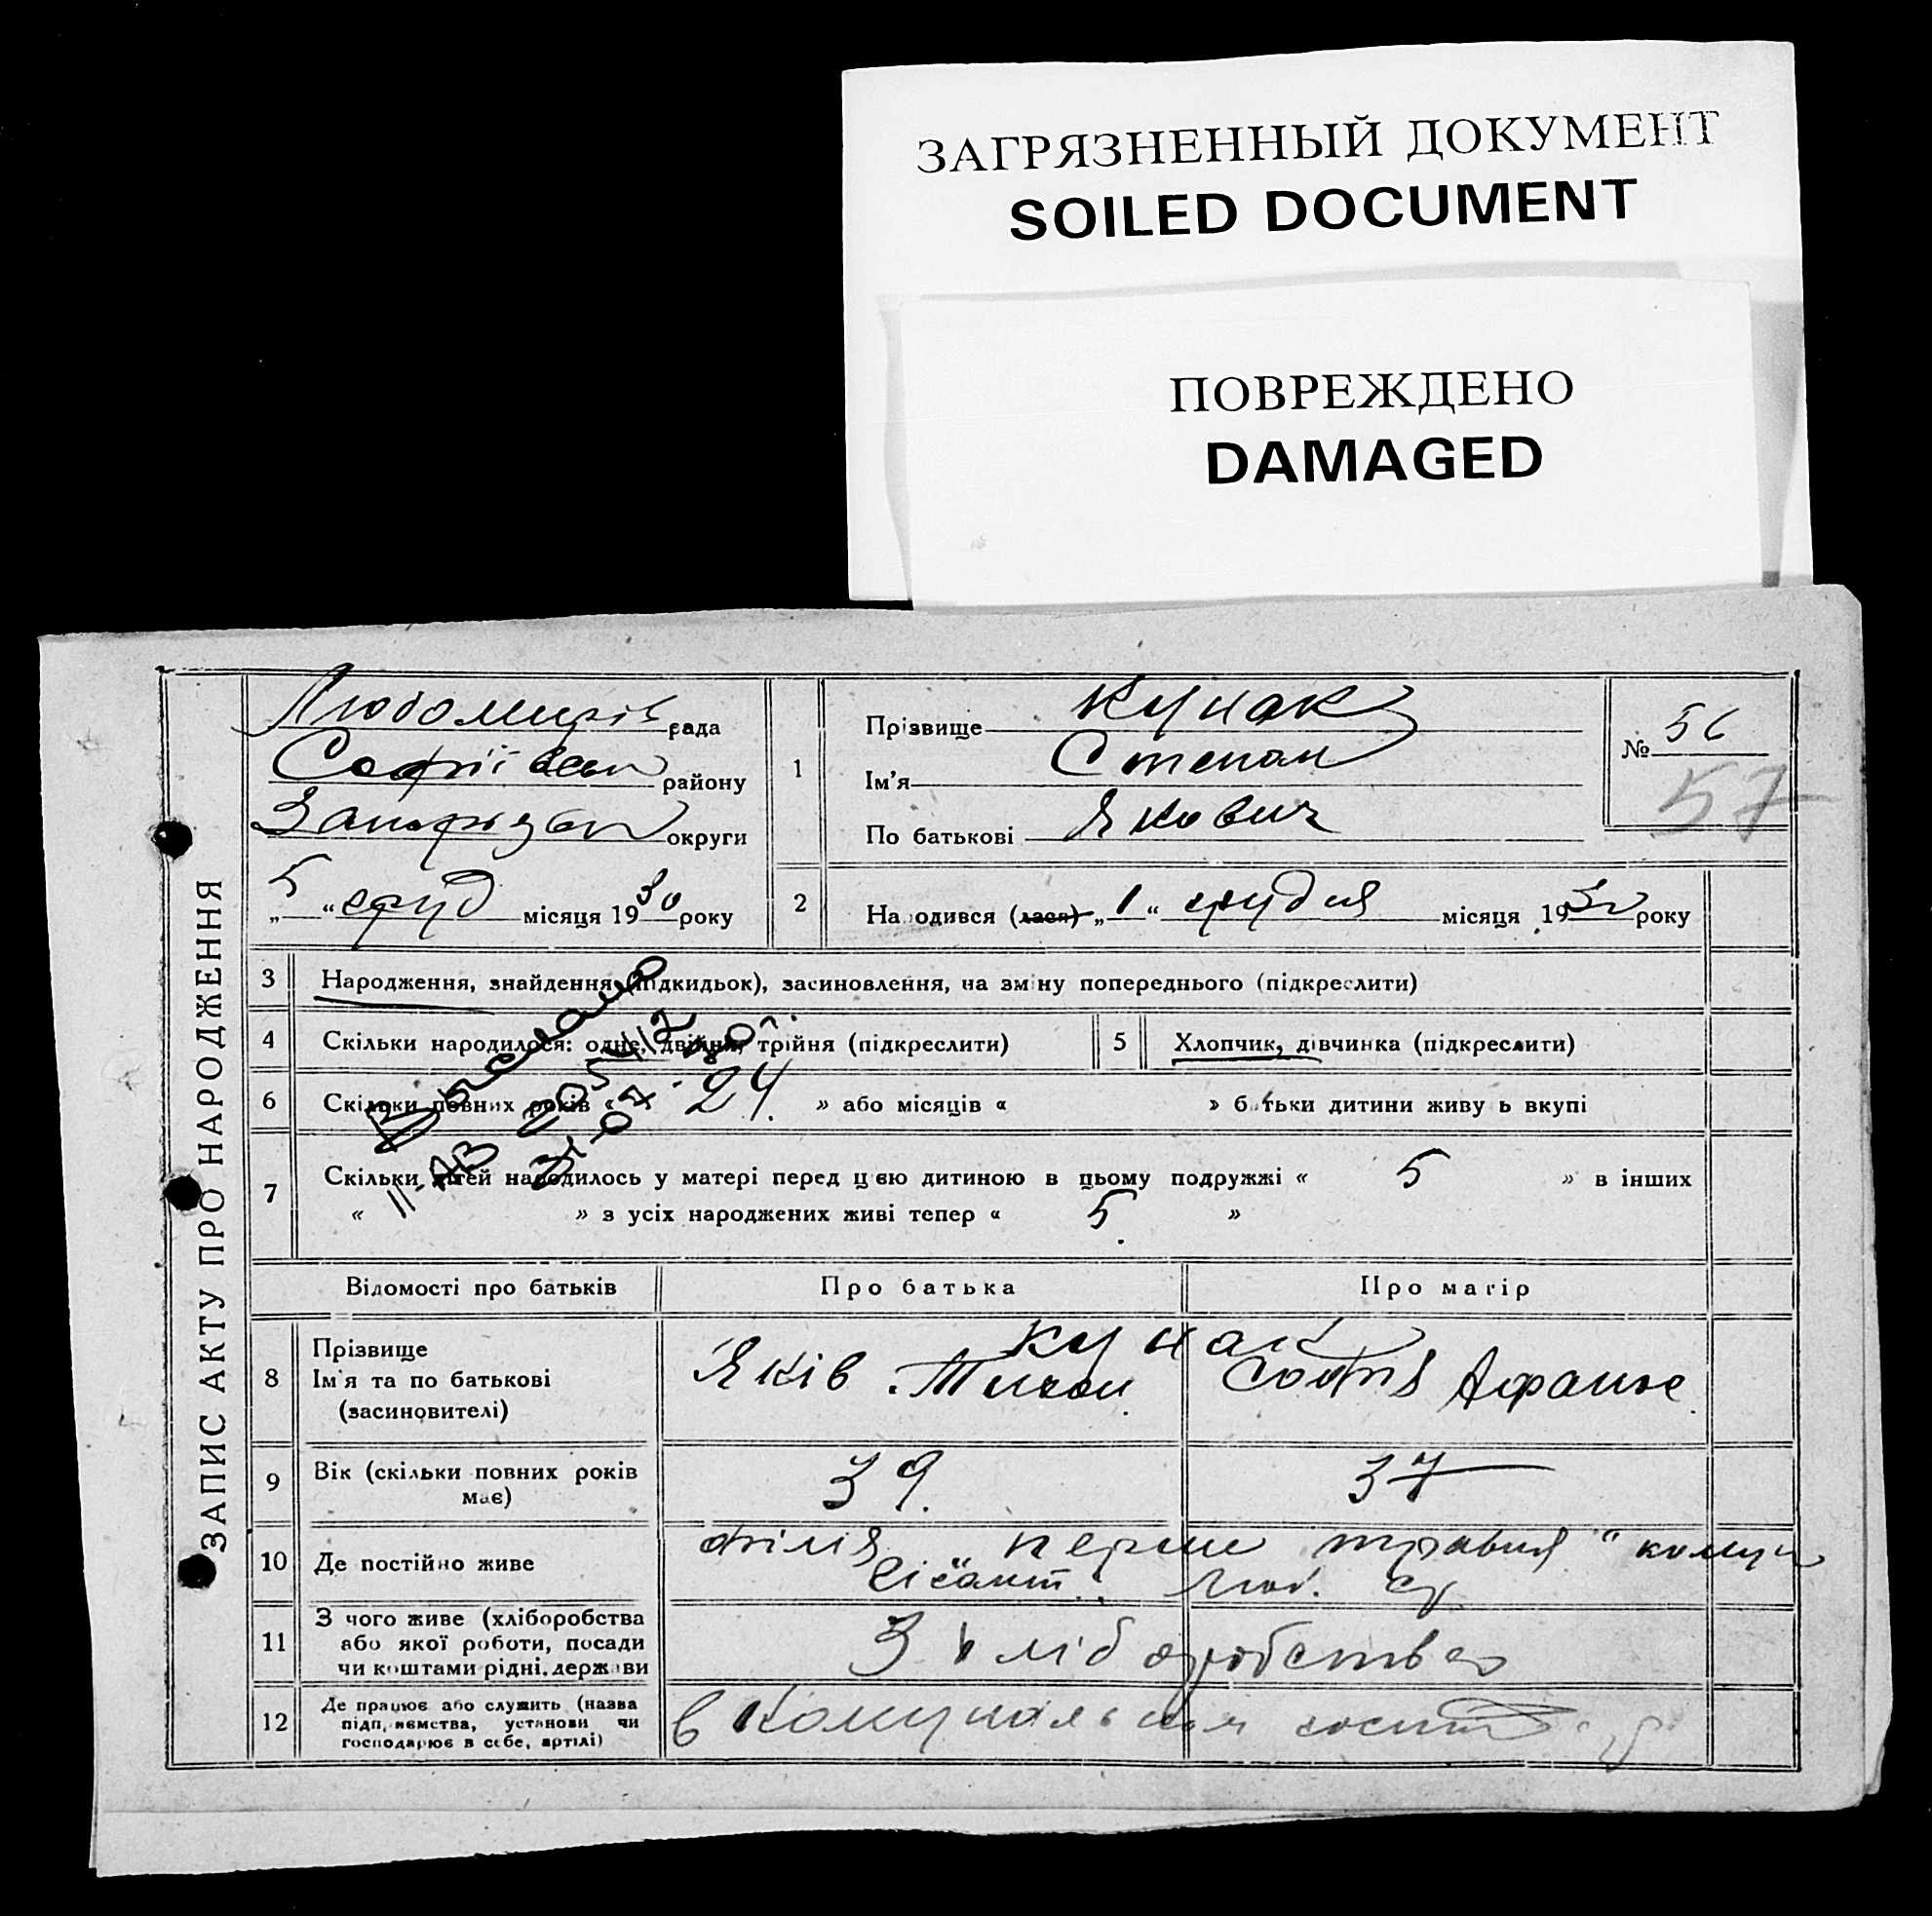 ЗАГРЯЗНЕННЫЙ ДОКУМЕНТ
SOILED DOCUMENT
ПОВРЕЖДЕНО
DAMAGED
ЗАПИС АКТУ ПРО НАРОДЖЕННЯ
Любомирів рада
Софіївськ району
Запорізьк округи
„5“ груд місяця 1930 року
1
Прізвище Кунак
Ім'я Степан
По батькові Якович
№ 56
57
2
Народився (лася) „1“ грудня місяця 1930 року
3 Народження, знайдення (підкидьок), засиновлення, на зміну попереднього (підкреслити)
4 Скільки народилося: одне, двійня, трійня (підкреслити)
5 Хлопчик, дівчинка (підкреслити)
6 Скільки повних років « 24. » або місяців « » батьки дитини живуть вкупі
7 Скільки дітей народилось у матері перед цією дитиною в цьому подружжі « 5 » в інших
« » з усіх народжених живі тепер « 5. »
Выслано
II-АВ
Відомості про батьків Про батька Про матір
8 Прізвище
Ім'я та по батькові
(засиновителі)
Кунак
Яків Тихон. Софія Афанас.
9 Вік (скільки повних років
має)
39. 37
10 Де постійно живе
філія „перше травня“ комун
Люб. с/р
11 З чого живе (хліборобства
або якої роботи, посади
чи коштами рідні, держави
З хліборобства
12 Де працює або служить (назва
підприємства, установи чи
господарює в себе, артілі)
в Комунальнім